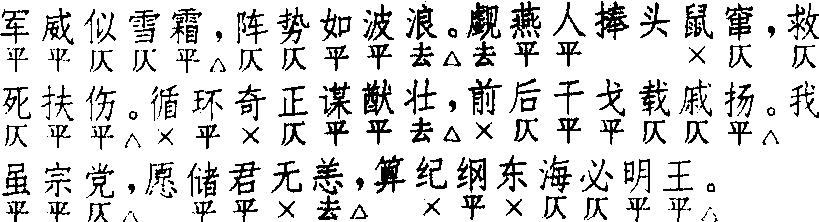 军威似雪霜,阵势如波浪。觑燕人捧头鼠窜,救
平平仄仄平△仄仄平平去△去平平×仄仄
死扶伤。循环奇正谋猷壮,前后干戈载戚扬。我
仄平平△×平×仄平平去△×仄平平仄仄平△
虽宗党,愿储君无恙,算纪纲东海必明王。
平平仄△平平×去△×平×仄仄平平△